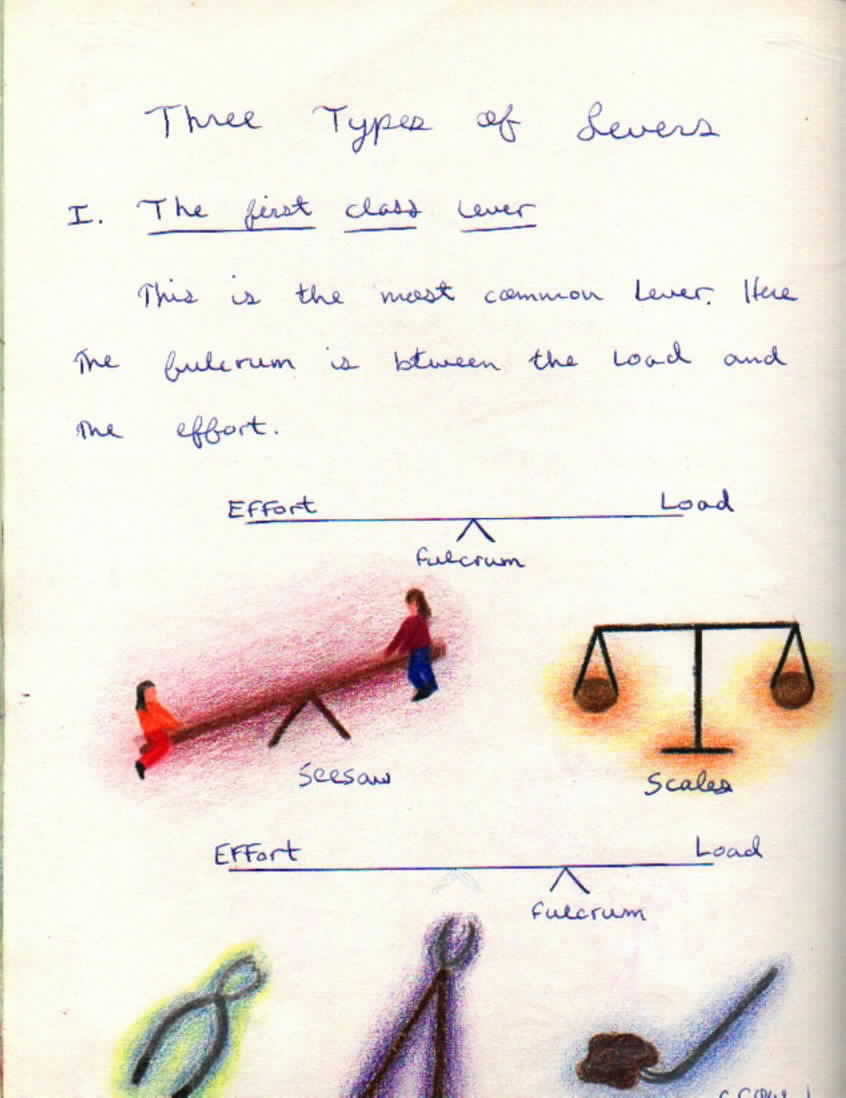 Three Types of Levers
I. The first class Lever
This is the most common Lever. Here
The fulcrum is btween the Load and
The effort.
Effort Load
fulcrum
Seesaw
Scales
Effort Load
fulcrum